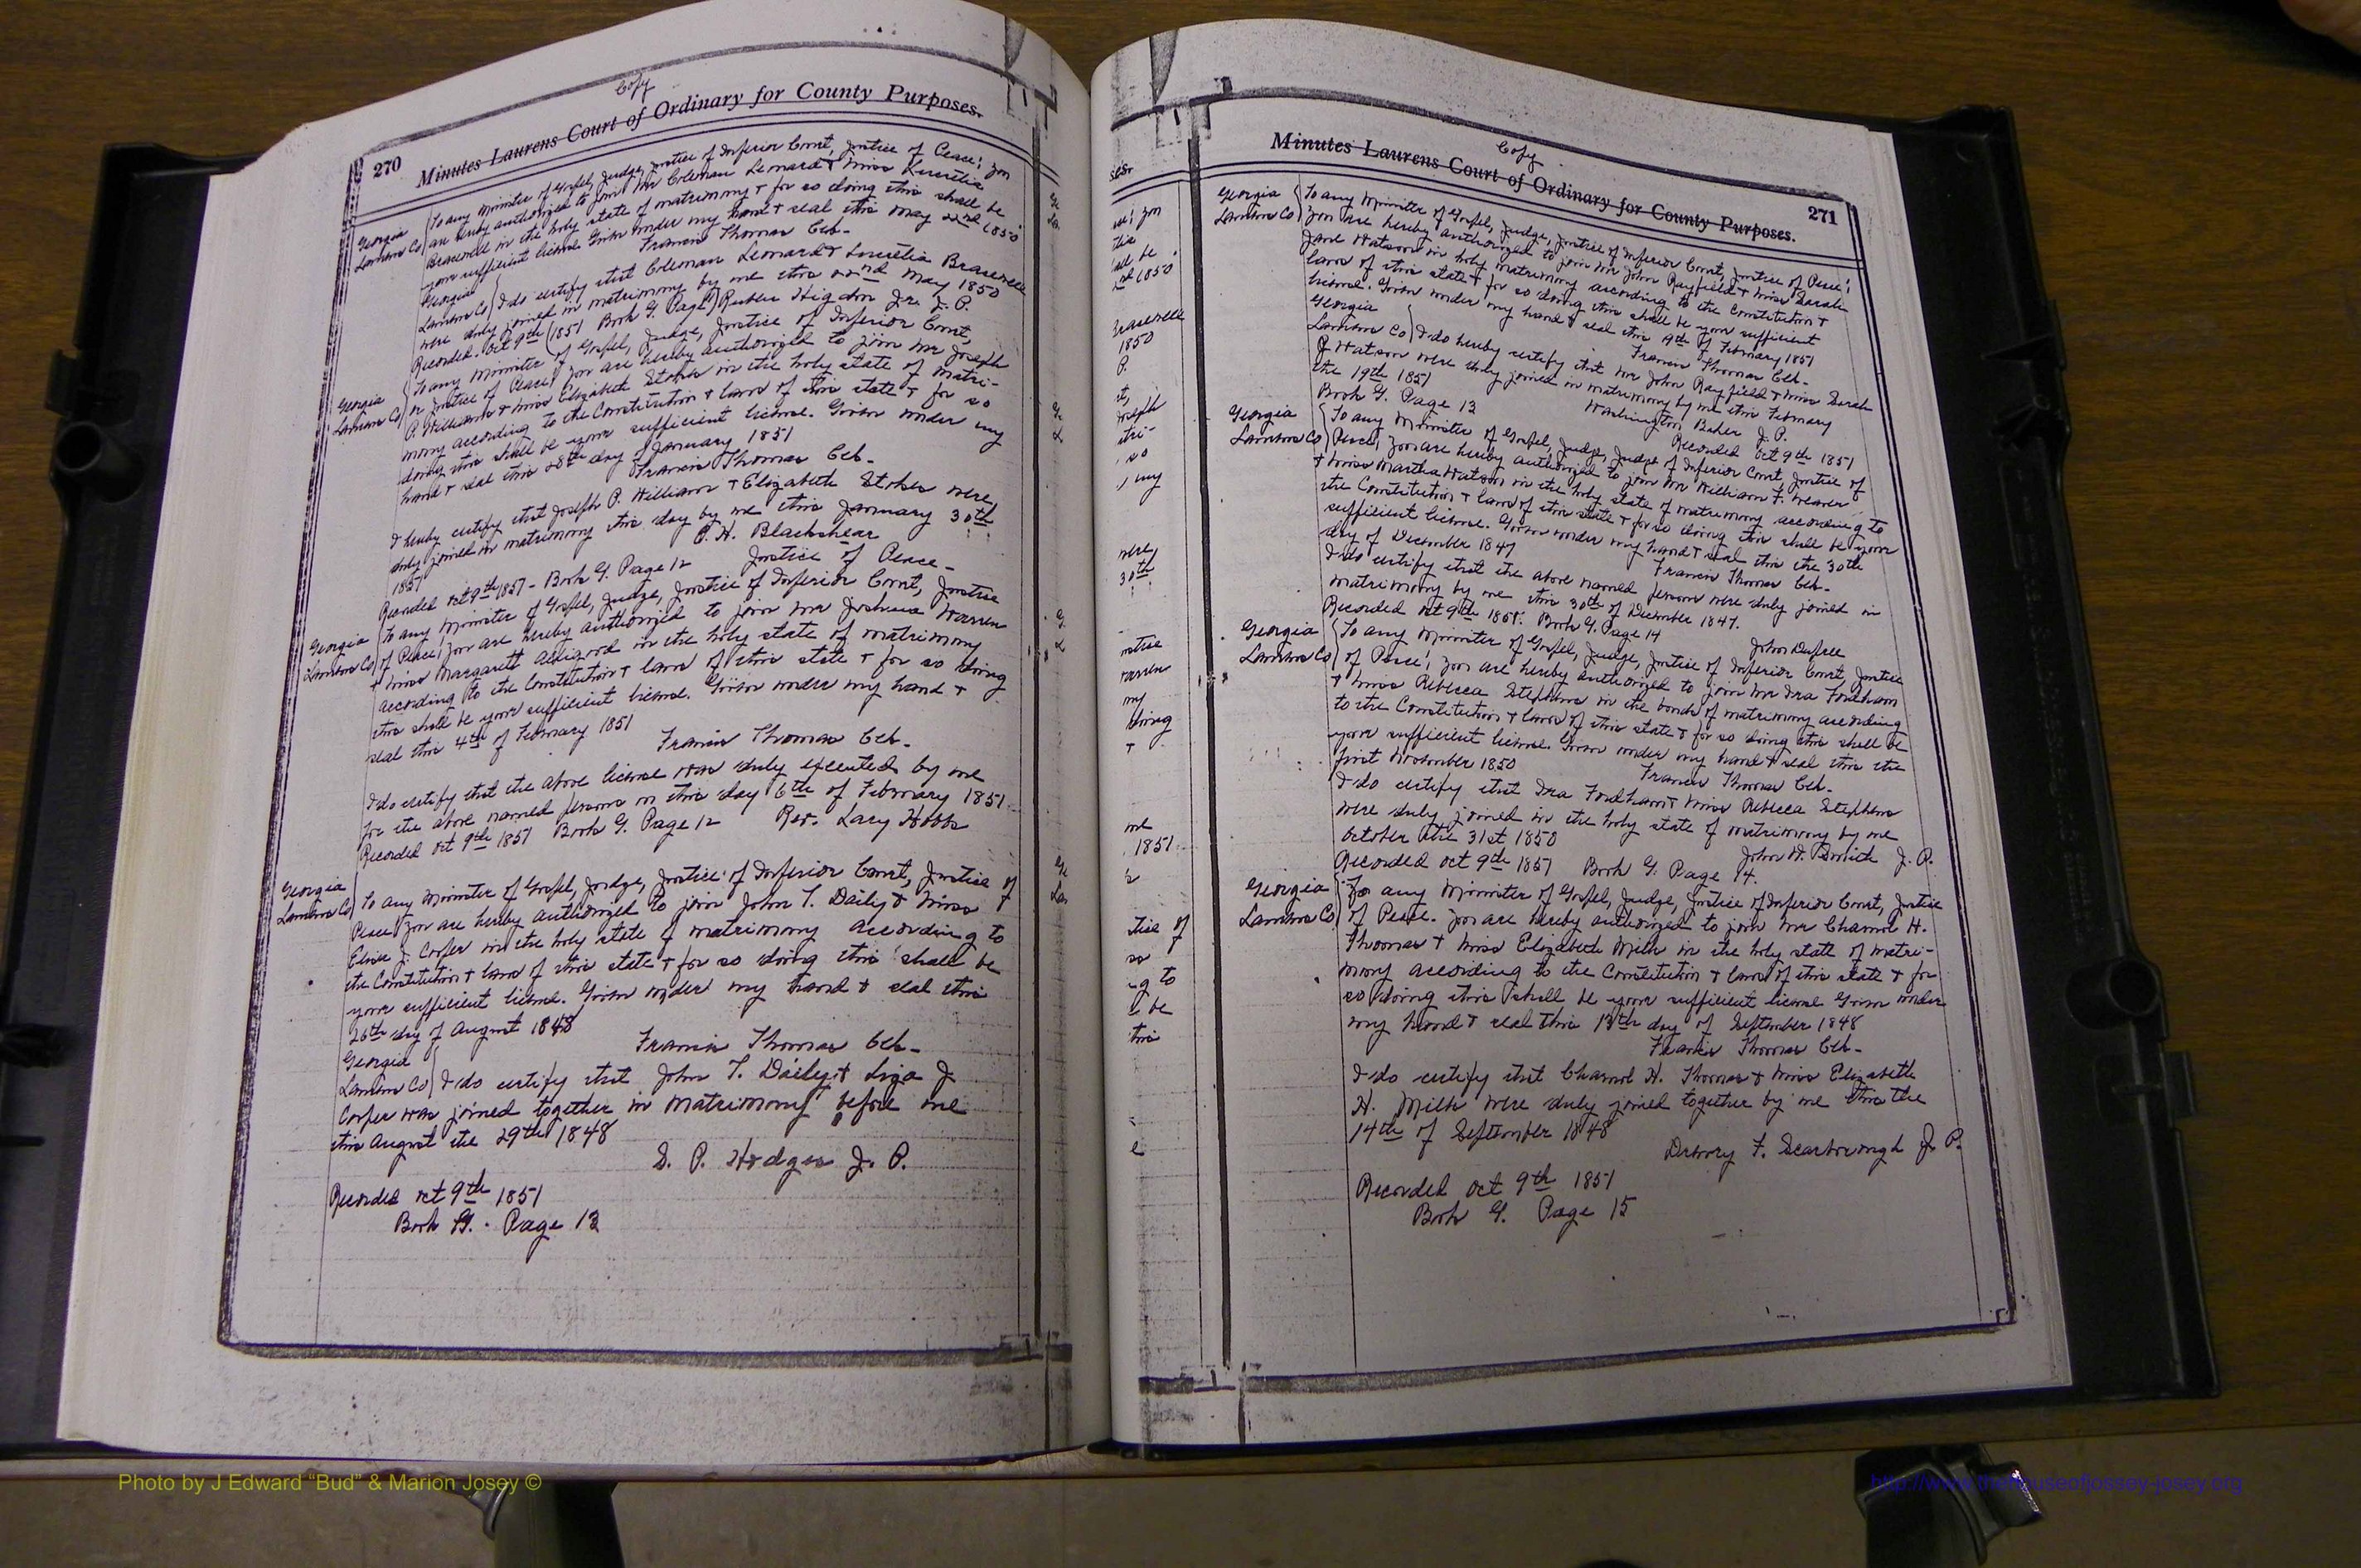 Copy
270 Minutes Laurens Court of Ordinary for County Purposes.
Georgia
Laurens Co
To any Minister of Gospel, Judge, Justice of Inferior Court, Justice of Peace; you
are hereby authorized to join Mr Coleman Leonard & Miss Luretia
Bracewell in the holy state of matrimony & for so doing this shall be
your sufficient license Given under my hand & seal this May 22nd 1850
Francis Thomas Clk.
Georgia
Laurens Co I do certify that Coleman Leonard & Luretia Bracewell
were duly joined in matrimony by me this 22nd May 1850
Recorded Oct 9th 1851 Book G. Page Reuben Higdon Jr. J. P.
Georgia
Laurens Co
To any Minister of Gospel, Judge, Justice of Inferior Court,
or Justice of Peace; you are hereby authorized to join Mr Joseph
P. Williams & Miss Elizabeth Stokes in the holy state of matri-
mony according to the Constitution & laws of this state & for so
doing this shall be your sufficient license. Given under my
hand & seal this 28th day of January 1851
Francis Thomas Clk.
I hereby certify that Joseph P. Williams & Elizabeth Stokes were
duly joined in matrimony this day by me this January 30th
1851 P. H. Blackshear
Justice of Peace-
Recorded Oct 9th 1851 - Book G. Page 12
Georgia
Laurens Co
To any Minister of Gospel, Judge, Justice of Inferior Court, Justice
of Peace; you are hereby authorized to join Mr Joshua Warren
& Miss Margarett in the holy state of matrimony
according to the Constitution & laws of this state & for so doing
this shall be your sufficient license. Given under my hand &
seal this 4th of February 1851
Francis Thomas Clk.
I do certify that the above license was duly executed by me
for the above named persons on this day 6th of February 1851
Recorded Oct 9th 1851 Book G. Page 12 Rev. Lary Hobbs
Georgia
Laurens Co
To any Minister of Gospel, Judge, Justice of Inferior Court, Justice of
Peace you are hereby authorized to join John T. Daily & Miss
Eliza J. Corker in the holy state of matrimony according to
the Constitution & laws of this state & for so doing this shall be
your sufficient license. Given under my hand & seal this
26th day of August 1848
Francis Thomas Clk-
Georgia
Laurens Co I do certify that John T. Daily & Liza J.
Corker was joined together in Matrimony before me
this August the 29th 1848
S. P. Hodges J. P.
Recorded Oct 9th 1851
Book G. Page 13
Copy
Minutes Laurens Court of Ordinary for County Purposes. 271
Georgia
Laurens Co
To any Minister of Gospel, Judge, Justice of Inferior Court, Justice of Peace;
you are hereby authorized to join Mr John Rayfield & Miss Sarah
Jane Watson in holy matrimony according to the Constitution &
laws of this state & for so doing this shall be your sufficient
license. Given under my hand & seal this 19th of February 1851
Francis Thomas Clk-
Georgia
Laurens Co I do hereby certify that Mr John Rayfield & Miss Sarah
J Watson were duly joined in matrimony by me this February
the 19th 1851 Washington Baker J. P.
Book G. Page 13 Recorded Oct 9th 1851
Georgia
Laurens Co
To any Minister of Gospel, Judge, Judge of Inferior Court, Justice of
Peace; you are hereby authorized to join Mr William F. Weaver
& Miss Martha Watson in the holy state of matrimony according to
the Constitution & laws of this state & for so doing this shall be your
sufficient license. Given under my hand & seal this the 30th
day of December 1847 Francis Thomas Clk-
I do certify that the above named persons were duly joined in
matrimony by me this 30th of December 1847.
Recorded Oct 9th 1851. Book G. Page 14 John Dupree
Georgia
Laurens Co
To any Minister of Gospel, Judge, Justice of Inferior Court, Justice
of Peace; you are hereby authorized to join Mr Ira Fordham
& Miss Rebecca Stephens in the bonds of matrimony according
to the Constitution & laws of this state & for so doing this shall be
your sufficient license. Given under my hand & seal this the
first November 1850 Francis Thomas Clk-
I do certify that Ira Fordham & Miss Rebecca Stephens
were duly joined in the holy state of matrimony by me
October the 31st 1850 John H. Smith J. P.
Recorded Oct 9th 1851 Book G. Page 14.
Georgia
Laurens Co
To any Minister of Gospel, Judge, Justice of Inferior Court, Justice
of Peace. you are hereby authorized to join Mr H.
Thomas & Miss Elizabeth in the holy state of matri-
mony according to the Constitution & laws of this state & for
so doing this shall be your sufficient license Given under
my hand & seal this 13th day of September 1848
Francis Thomas Clk-
I do certify that H. Thomas & Miss Elizabeth
H. were duly joined together by me this the
14th of September 1848
Drewry F. Scarborough J. P.
Recorded Oct 9th 1851
Book G. Page 15
Photo by J Edward “Bud” & Marion Josey ©
http://www.thehouseofjossey-josey.org